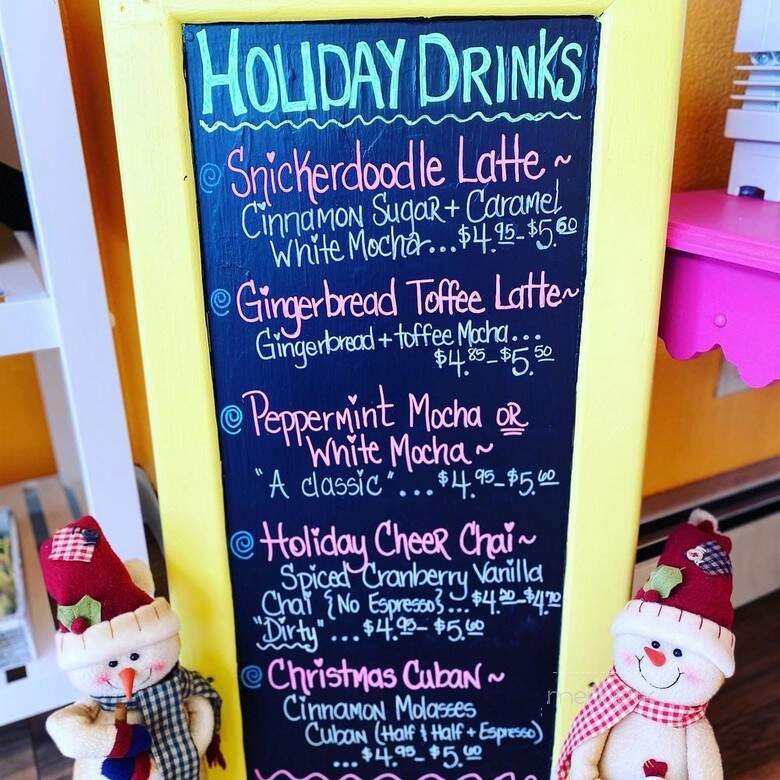 HOLIDAY DRINKS
Snickerdoodle Latte ~
Cinnamon Sugar + Caramel
White Mocha...$4.95-$5.60
Gingerbread Toffee Latte~
Gingerbread + toffee Mocha...
$4.85-$5.50
Peppermint Mocha OR
White Mocha ~
"A classic"...$4.95-$5.60
Holiday Cheer Chai ~
Spiced Cranberry Vanilla
Chai {No Espresso}...$4.20-$4.70
"Dirty"...$4.95-$5.60
Christmas Cuban ~
Cinnamon Molasses
Cuban (Half & Half + Espresso)
...$4.95-$5.60